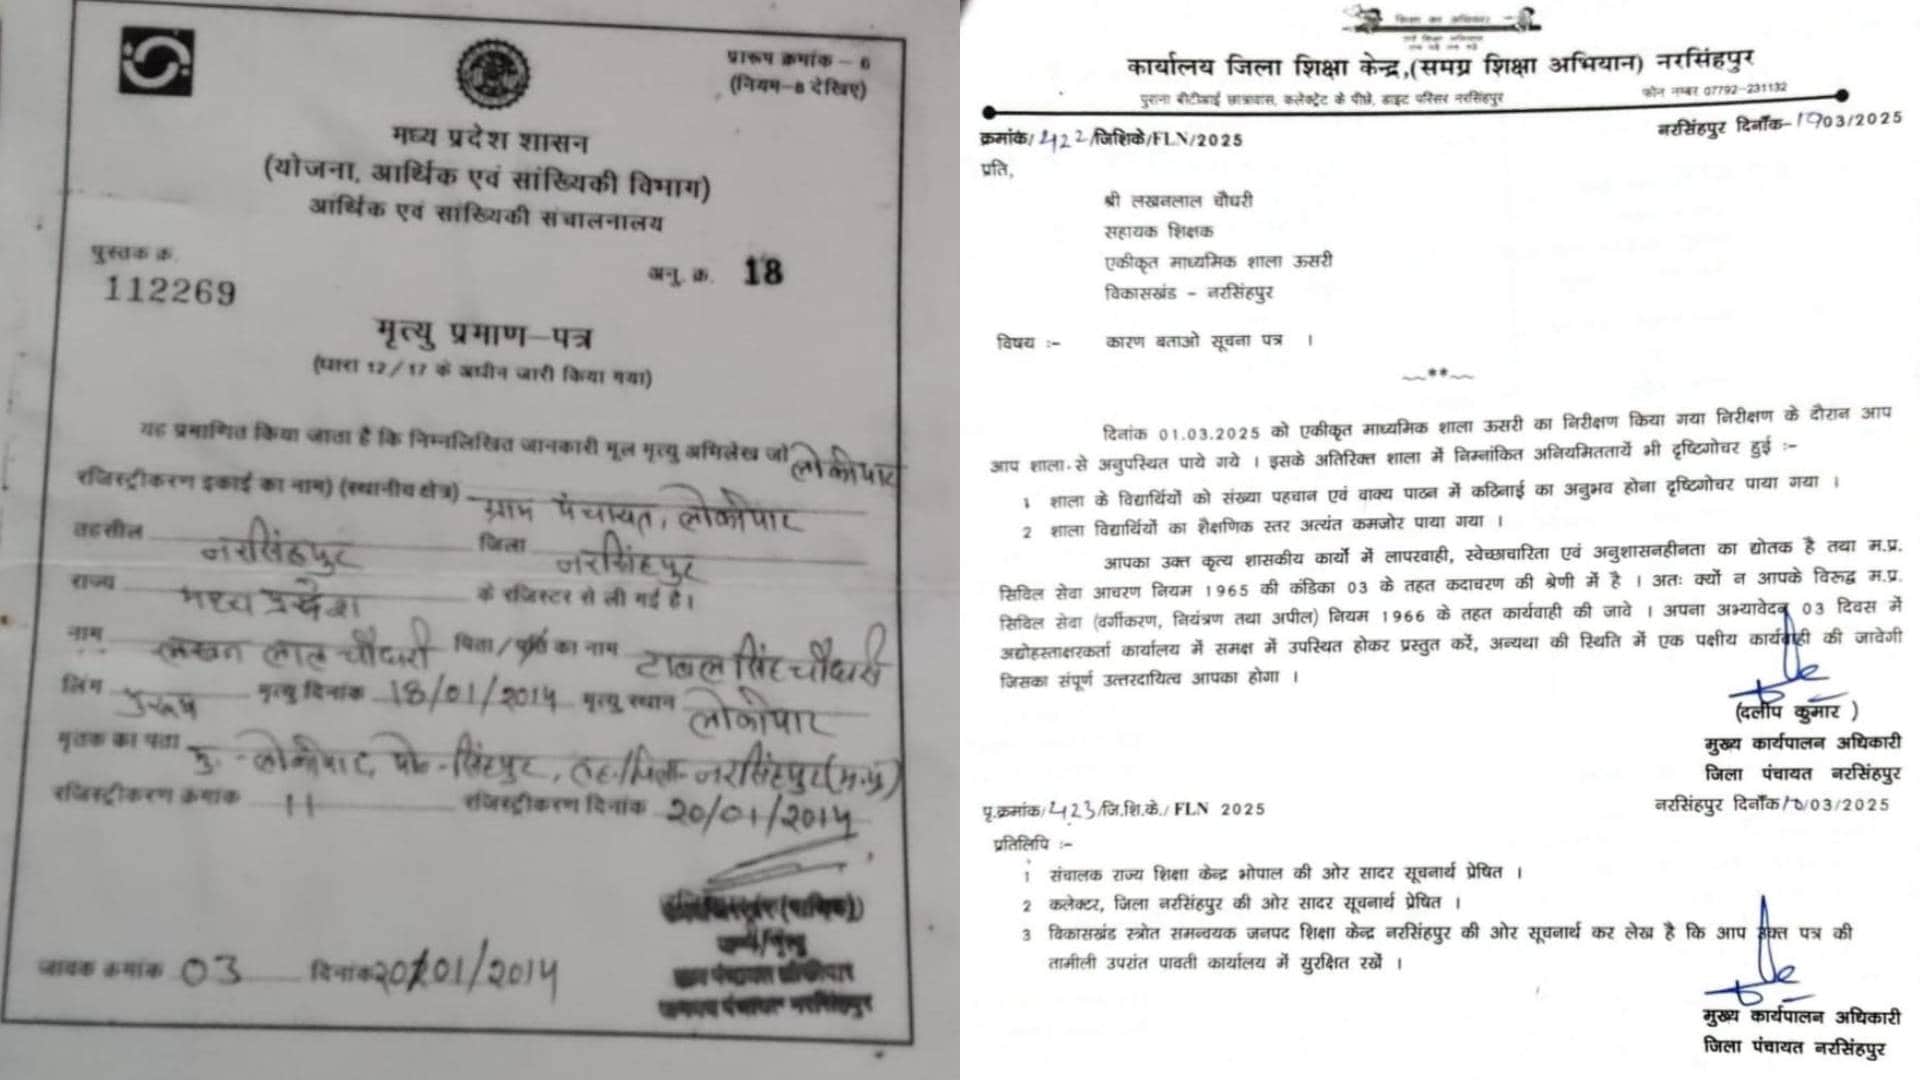 प्रारूप क्रमांक - 6
(नियम-8 देखिए)
मध्य प्रदेश शासन
(योजना, आर्थिक एवं सांख्यिकी विभाग)
आर्थिक एवं सांख्यिकी संचालनालय
पुस्तक क्र.
112269
अनु. क्र. 18
मृत्यु प्रमाण-पत्र
(धारा 12/17 के अधीन जारी किया गया)
यह प्रमाणित किया जाता है कि निम्नलिखित जानकारी मूल मृत्यु अभिलेख जो लोकीपार
रजिस्ट्रीकरण इकाई का नाम) (स्थानीय क्षेत्र) ग्राम पंचायत, लोकीपार
तहसील नरसिंहपुर जिला नरसिंहपुर
राज्य मध्य प्रदेश के रजिस्टर से ली गई है।
नाम लखन लाल चौधरी पिता/पति का नाम सिंह चौधरी
लिंग पुरूष मृत्यु दिनांक 18/01/2014 मृत्यु स्थान लोकीपार
मृतक का पता मु.-लोकीपार, पो.-सिंहपुर, तह./जिला-नरसिंहपुर(म.प्र)
रजिस्ट्रीकरण क्रमांक 11 रजिस्ट्रीकरण दिनांक 20/01/2014
जावक क्रमांक 03 दिनांक 20/01/2014
कार्यालय जिला शिक्षा केन्द्र,(समग्र शिक्षा अभियान) नरसिंहपुर
पुराना बीटीआई छात्रावास, कलेक्ट्रेट के पीछे, डाइट परिसर नरसिंहपुर
फोन नम्बर 07792-231132
क्रमांक/422/जिशिके/FLN/2025
नरसिंहपुर दिनाँक- /03/2025
प्रति,
श्री लखनलाल चौधरी
सहायक शिक्षक
एकीकृत माध्यमिक शाला ऊसरी
विकासखंड - नरसिंहपुर
विषय :- कारण बताओ सूचना पत्र ।
~~**~~
दिनांक 01.03.2025 को एकीकृत माध्यमिक शाला ऊसरी का निरीक्षण किया गया निरीक्षण के दौरान आप
आप शाला से अनुपस्थित पाये गये । इसके अतिरिक्त शाला में निम्नांकित अनियमिततायें भी दृष्टिगोचर हुई :-
1 शाला के विद्यार्थियों को संख्या पहचान एवं वाक्य पाठन में कठिनाई का अनुभव होना दृष्टिगोचर पाया गया ।
2 शाला विद्यार्थियों का शैक्षणिक स्तर अत्यंत कमजोर पाया गया ।
आपका उक्त कृत्य शासकीय कार्यो में लापरवाही, स्वेच्छाचारिता एवं अनुशासनहीनता का द्योतक है तथा म.प्र.
सिविल सेवा आचरण नियम 1965 की कंडिका 03 के तहत कदाचरण की श्रेणी में है । अतः क्यों न आपके विरूद्ध म.प्र.
सिविल सेवा (वर्गीकरण, नियंत्रण तथा अपील) नियम 1966 के तहत कार्यवाही की जावे । अपना अभ्यावेदन 03 दिवस में
अद्योहस्ताक्षरकर्ता कार्यालय में समक्ष में उपस्थित होकर प्रस्तुत करें, अन्यथा की स्थिति में एक पक्षीय कार्यवाही की जावेगी
जिसका संपूर्ण उत्तरदायित्व आपका होगा ।
(दलीप कुमार )
मुख्य कार्यपालन अधिकारी
जिला पंचायत नरसिंहपुर
पृ.क्रमांक/423/जि.शि.के./ FLN 2025
नरसिंहपुर दिनाँक/10/03/2025
प्रतिलिपि :-
1 संचालक राज्य शिक्षा केन्द्र भोपाल की ओर सादर सूचनार्थ प्रेषित ।
2 कलेक्टर, जिला नरसिंहपुर की ओर सादर सूचनार्थ प्रेषित ।
3 विकासखंड स्त्रोत समन्वयक जनपद शिक्षा केन्द्र नरसिंहपुर की ओर सूचनार्थ कर लेख है कि आप उक्त पत्र की
तामीली उपरांत पावती कार्यालय में सुरक्षित रखें ।
मुख्य कार्यपालन अधिकारी
जिला पंचायत नरसिंहपुर